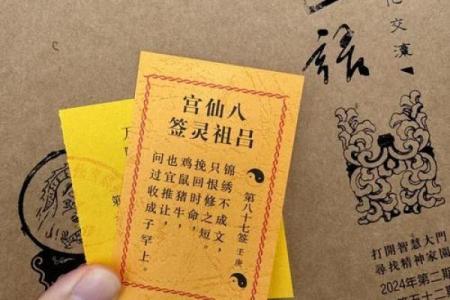 八仙宫
吕祖灵签
第八十七签 壬庚
锦绣不成文,
只恨修之短。
挽回时命
鸡鼠猪牛,
也宜推让,
问过收成子罕上。
語
打開智慧大門
尋找精神家園
2024年第二期
五十二期